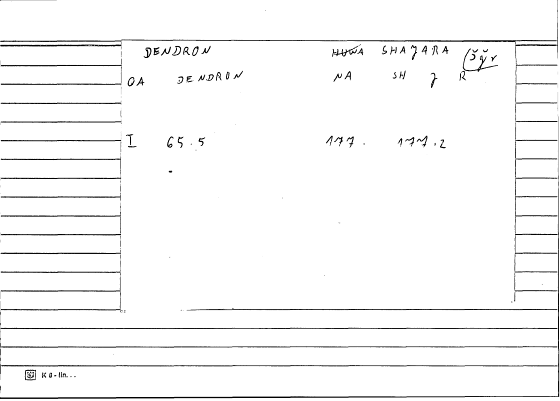 DENDRON HUWA SHAJARA (šǧr
OA DENDRON NA SH J R
I 65.5 177. 177.2
K 8 - lin...